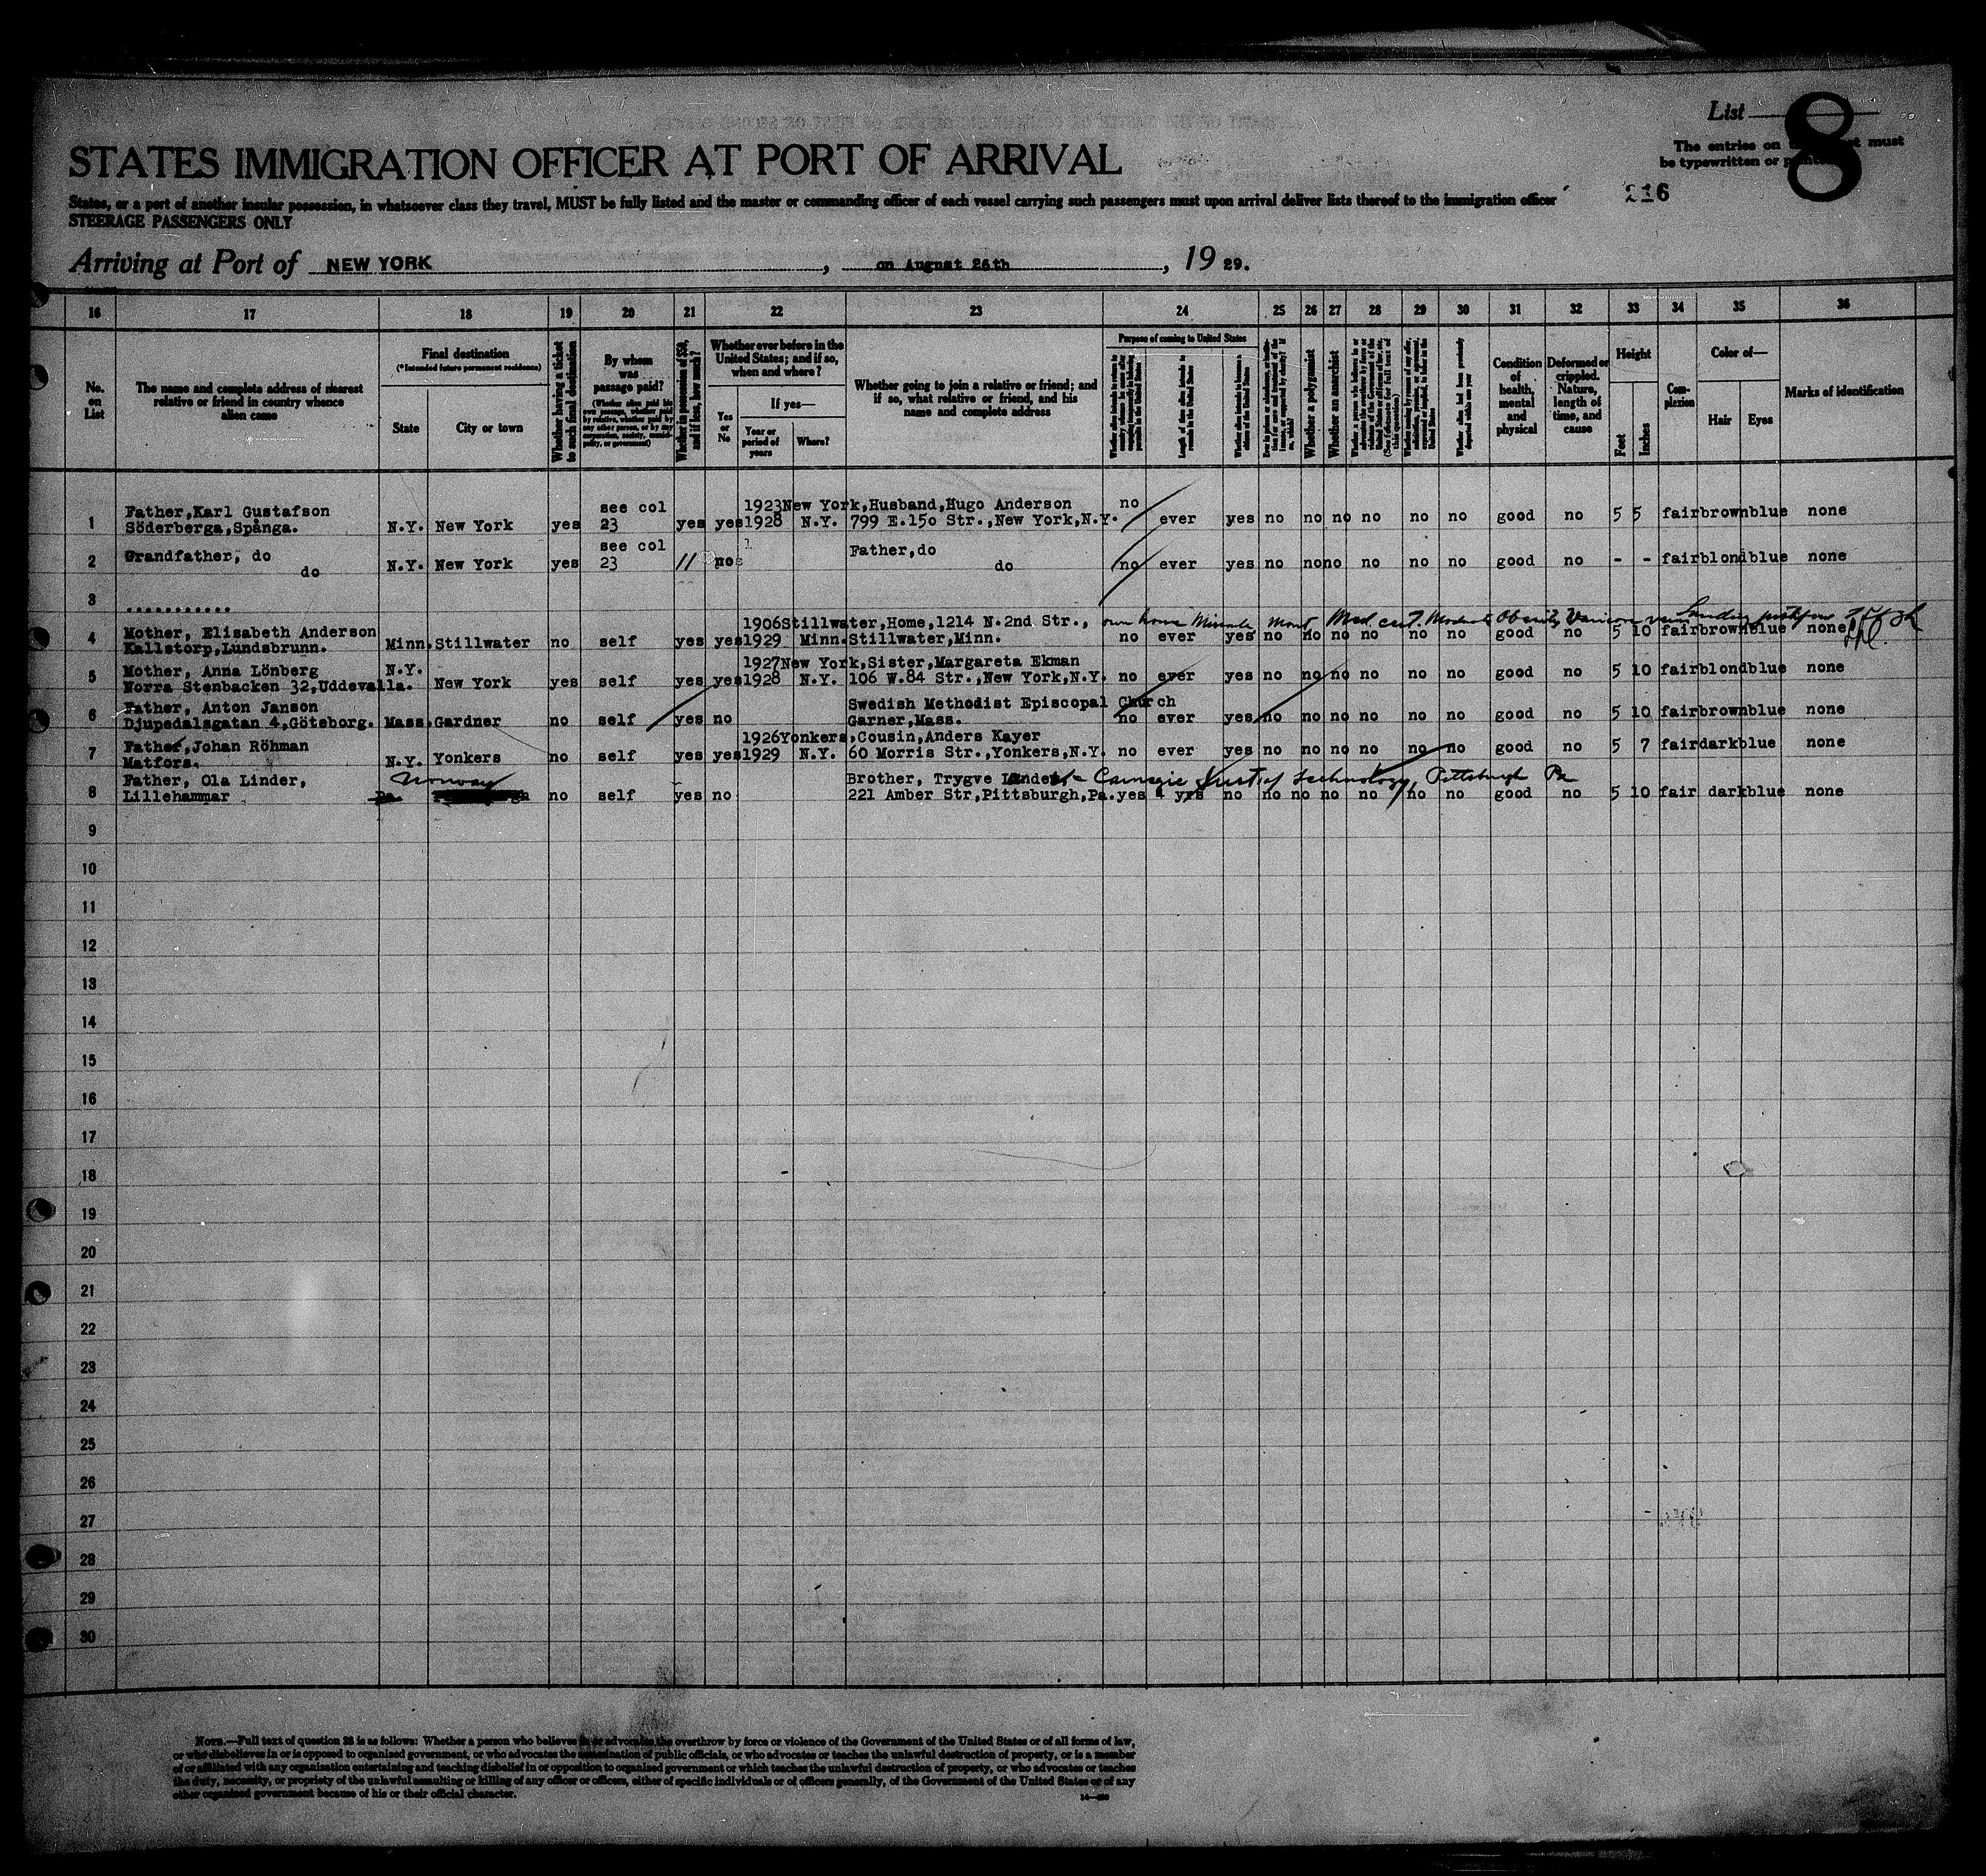 List 8
The entries on must
be typewritten or
STATES IMMIGRATION OFFICER AT PORT OF ARRIVAL
216
States, or a part of another insular possession, in whatsoever class they travel, MUST be fully listed and the master or commanding officer of each vessel carrying such passengers must upon arrival deliver lists thereof to the immigration officer
STEERAGE PASSENGERS ONLY
Arriving at Port of NEW YORK, on August 26th, 19 29.
16 17 18 19 20 21 22 23 24 25 26 27 28 29 30 31 32 33 34 35 36
No. on List
The name and complete address of nearest relative or friend in country whence alien came
Final destination
(*Intended future permanent residence)
State
City or town
Whether having a ticket to such final destination
By whom was passage paid?
Whether in possession of $50, and if less, how much?
Whether ever before in the United States; and if so, when and where?
Yes or No
If yes—
Year or period of years
Where?
Whether going to join a relative or friend; and if so, what relative or friend, and his name and complete address
Purpose of coming to United States
Length of time alien intends to remain in the United States
Whether alien intends to become a citizen of the United States
Whether a polygamist
Whether an anarchist
Whether alien had been previously deported within one year
Condition of health, mental and physical
Deformed or crippled. Nature, length of time, and cause
Height
Feet
Inches
Complexion
Color of—
Hair
Eyes
Marks of identification
Father,Karl Gustafson see col 1923New York,Husband,Hugo Anderson no
1 Söderberga,Spånga. N.Y. New York yes 23 yes yes1928 N.Y. 799 E.15o Str.,New York,N.Y. ever yes no no no no no no good no 5 5 fairbrownblue none
Grandfather, do see col Father,do
2 do N.Y. New York yes 23 // no do no ever yes no nono no no no good no - - fairblondblue none
3 ...........
1906Stillwater,Home,1214 N.2nd Str., own home Med. cert. Obesity
4 Mother, Elisabeth Anderson
Kallstorp,Lundsbrunn. Minn.Stillwater no self yes yes1929 Minn.Stillwater,Minn. no ever yes no no no no no no good no 5 10 fairbrownblue none
Mother, Anna Lönberg N.Y. 1927New York,Sister,Margareta Ekman
5 Norra Stenbacken 32,Uddevalla. New York yes self yes yes1928 N.Y. 106 W.84 Str.,New York,N.Y. no ever yes no no no no no no good no 5 10 fairblondblue none
Father, Anton Janson Swedish Methodist Episcopal Church
6 Djupedalsgatan 4,Göteborg. Mass.Gardner no self yes no Garner,Mass. no ever yes no no no no no no good no 5 10 fairbrownblue none
Father,Johan Röhman 1926Yonkers,Cousin,Anders Kayer
7 Matfors. N.Y. Yonkers no self yes yes1929 N.Y. 60 Morris Str.,Yonkers,N.Y. no ever yes no no no no no no good no 5 7 fairdarkblue none
Father, Ola Linder, Norway Brother, Trygve Linder - Carnegie Inst. of Technology, Pittsburgh Pa
8 Lillehammar no self yes no 221 Amber Str,Pittsburgh,Pa.yes 4 yrs no no no no no no no good no 5 10 fair darkblue none
9
10
11
12
13
14
15
16
17
18
19
20
21
22
23
24
25
26
27
28
29
30
NOTE.—Full text of question 28 is as follows: Whether a person who believes in or advocates the overthrow by force or violence of the Government of the United States or of all forms of law,
or who disbelieves in or is opposed to organized government, or who advocates the assassination of public officials, or who advocates or teaches the unlawful destruction of property, or is a member
of or affiliated with any organization entertaining and teaching disbelief in or opposition to organized government or which teaches the unlawful destruction of property, or who advocates or teaches
the duty, necessity, or propriety of the unlawful assaulting or killing of any officer or officers, either of specific individuals or of officers generally, of the Government of the United States or of any
other organized government because of his or their official character.